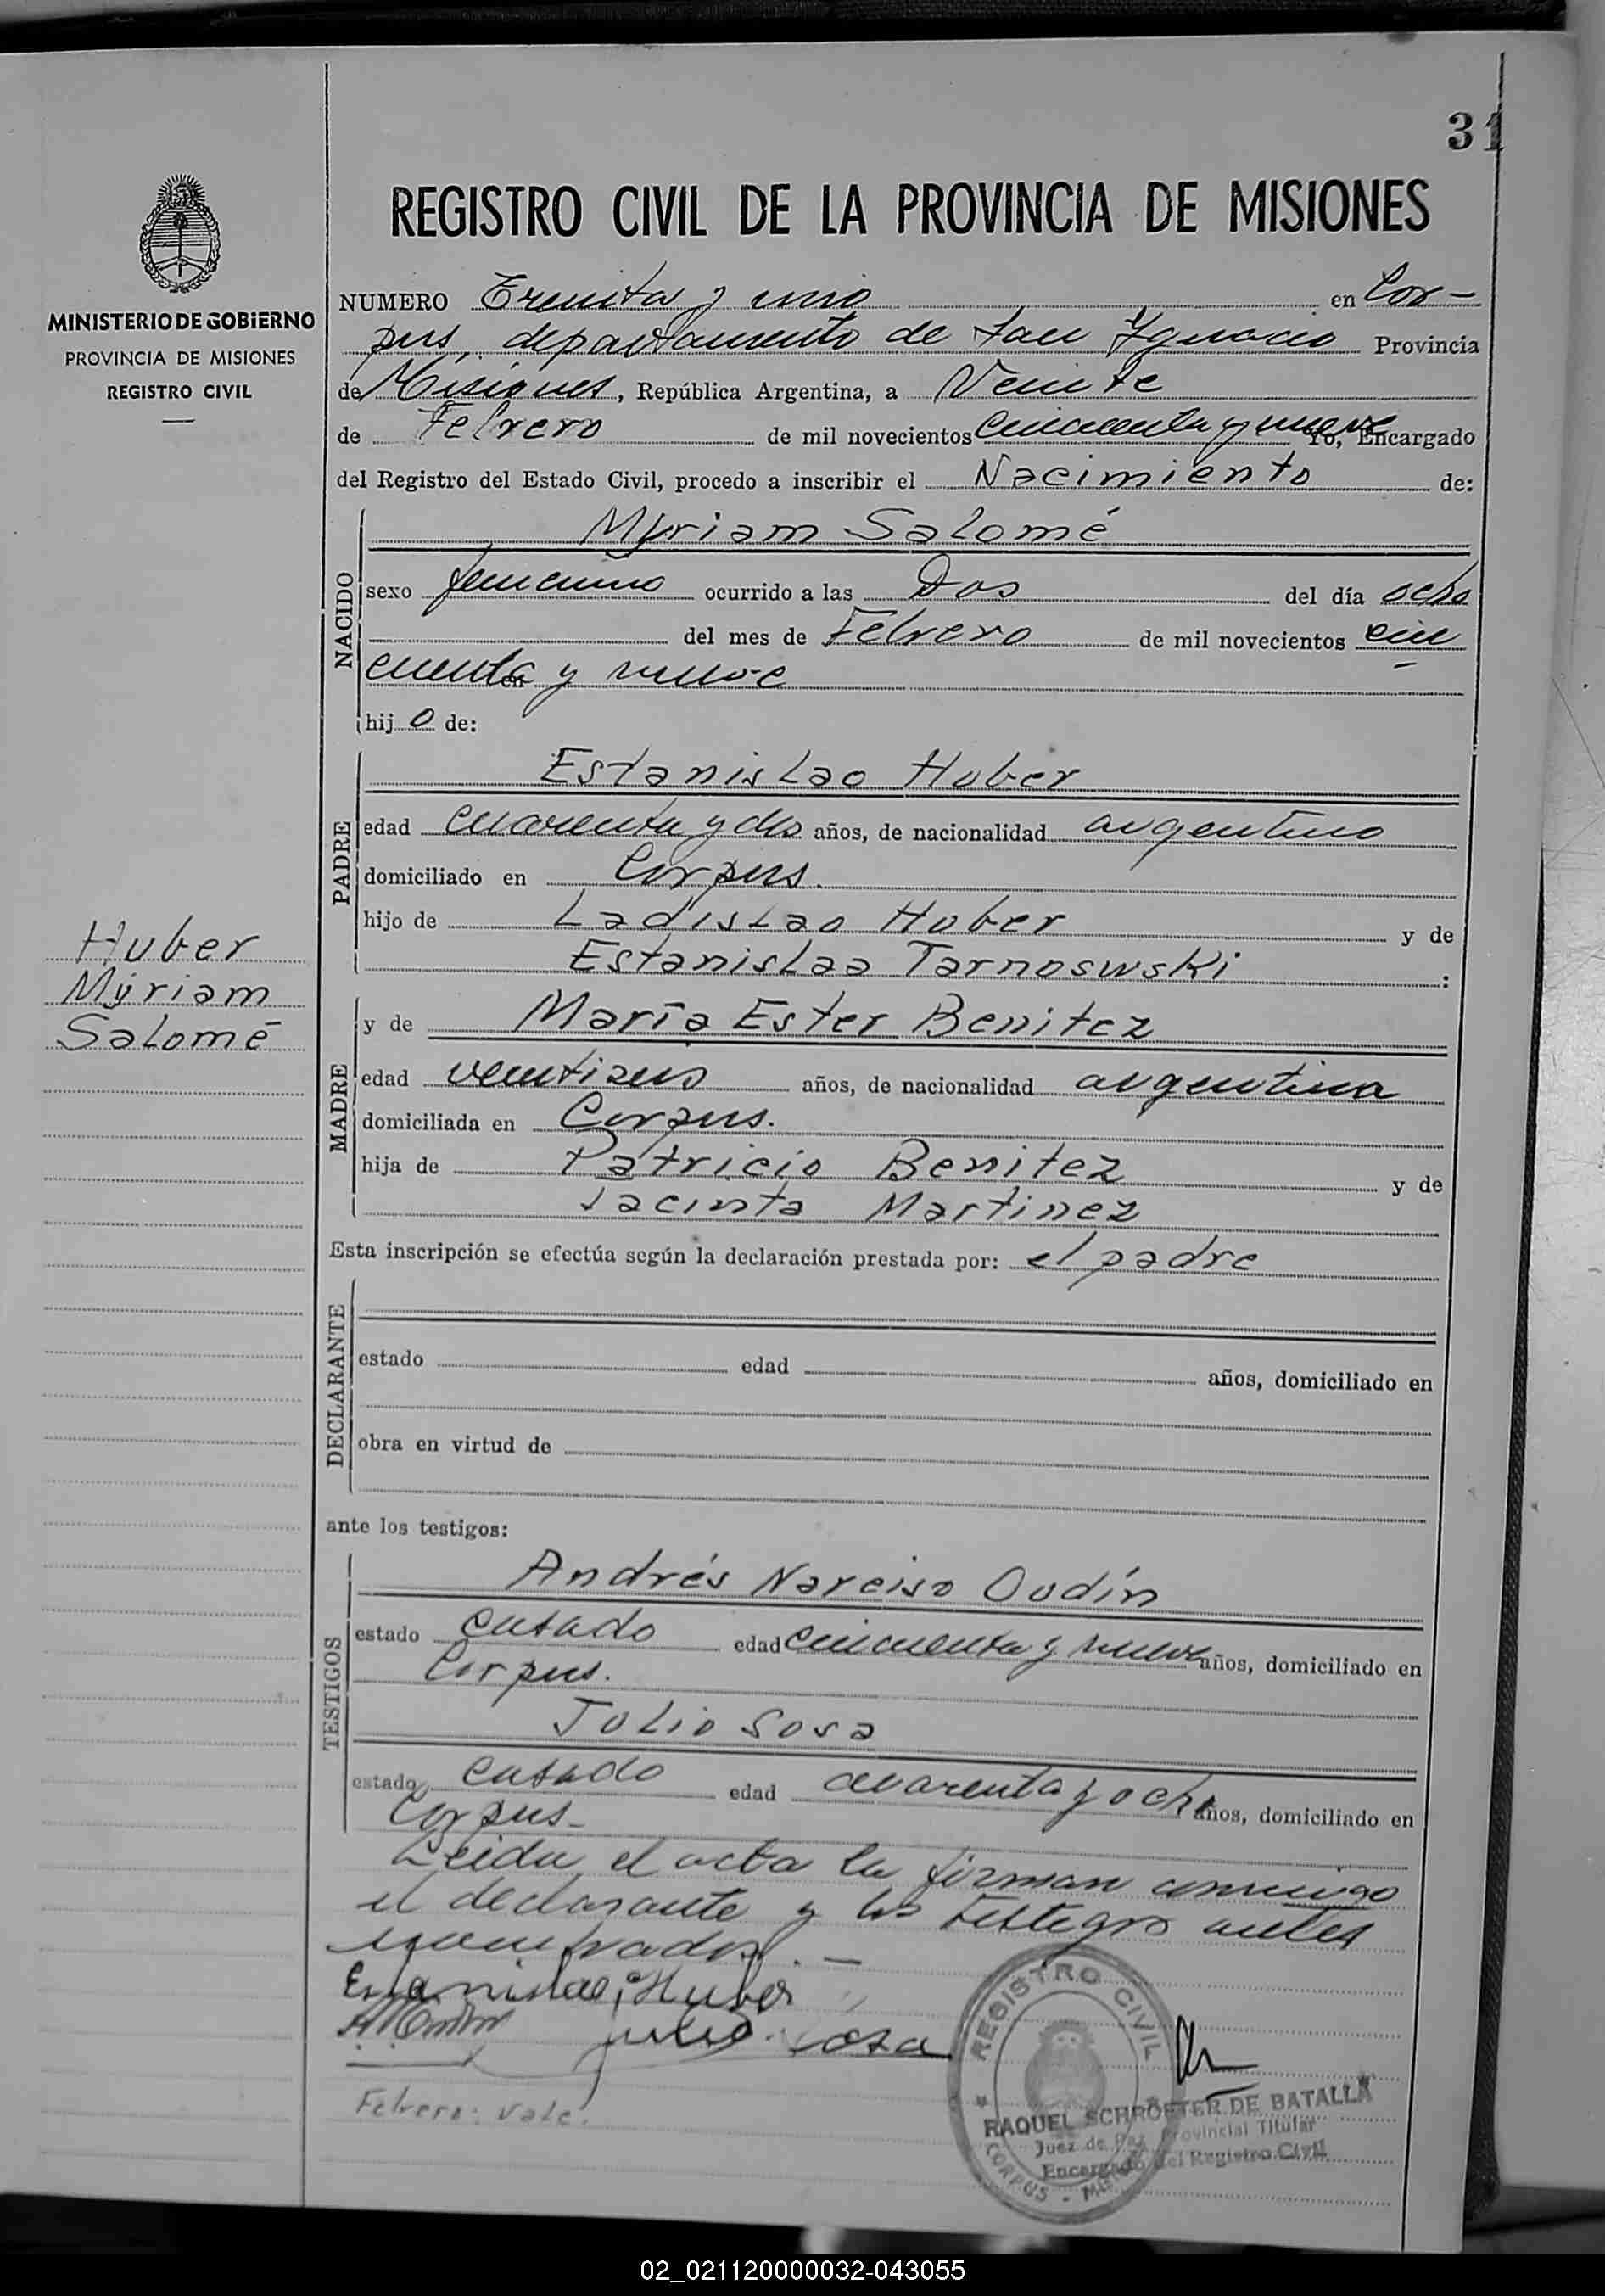 31
REGISTRO CIVIL DE LA PROVINCIA DE MISIONES
MINISTERIO DE GOBIERNO
PROVINCIA DE MISIONES
REGISTRO CIVIL
NUMERO Treinta y uno en Cor-
pus, departamento de San Ygnacio Provincia
de Misiones, República Argentina, a Veinte
de Febrero de mil novecientos cincuenta y nueve Yo, Encargado
del Registro del Estado Civil, procedo a inscribir el Nacimiento de:
NACIDO
Myriam Salomé
sexo femenino ocurrido a las Dos del día ocho
del mes de Febrero de mil novecientos cin
cuenta y nueve en
hij o de:
PADRE
Estanislao Huber
edad cuarenta y dos años, de nacionalidad argentino
domiciliado en Corpus.
hijo de Ladislao Huber y de
Estanislaa Tarnoswski :
Huber
Myriam
Salomé
MADRE
y de María Ester Benitez
edad veintiseis años, de nacionalidad argentina
domiciliada en Corpus.
hija de Patricio Benitez y de
Jacinta Martinez
Esta inscripción se efectúa según la declaración prestada por: el padre
DECLARANTE
estado edad años, domiciliado en
obra en virtud de
ante los testigos:
TESTIGOS
Andrés Narciso Oudín
estado casado edad cincuenta y nueve años, domiciliado en
Corpus.
Julio Sosa
estado casado edad cuarenta y ocho años, domiciliado en
Corpus-
Leida el acta la firman conmigo
el declarante y los testigos antes
nombrados. —
Estanislao Huber
Julio Sosa
Febrero: Vale.
REGISTRO CIVIL
CORPUS -
RAQUEL SCHROETER DE BATALLA
Juez de Paz Provincial Titular
Encargado del Registro Civil
02_021120000032-043055